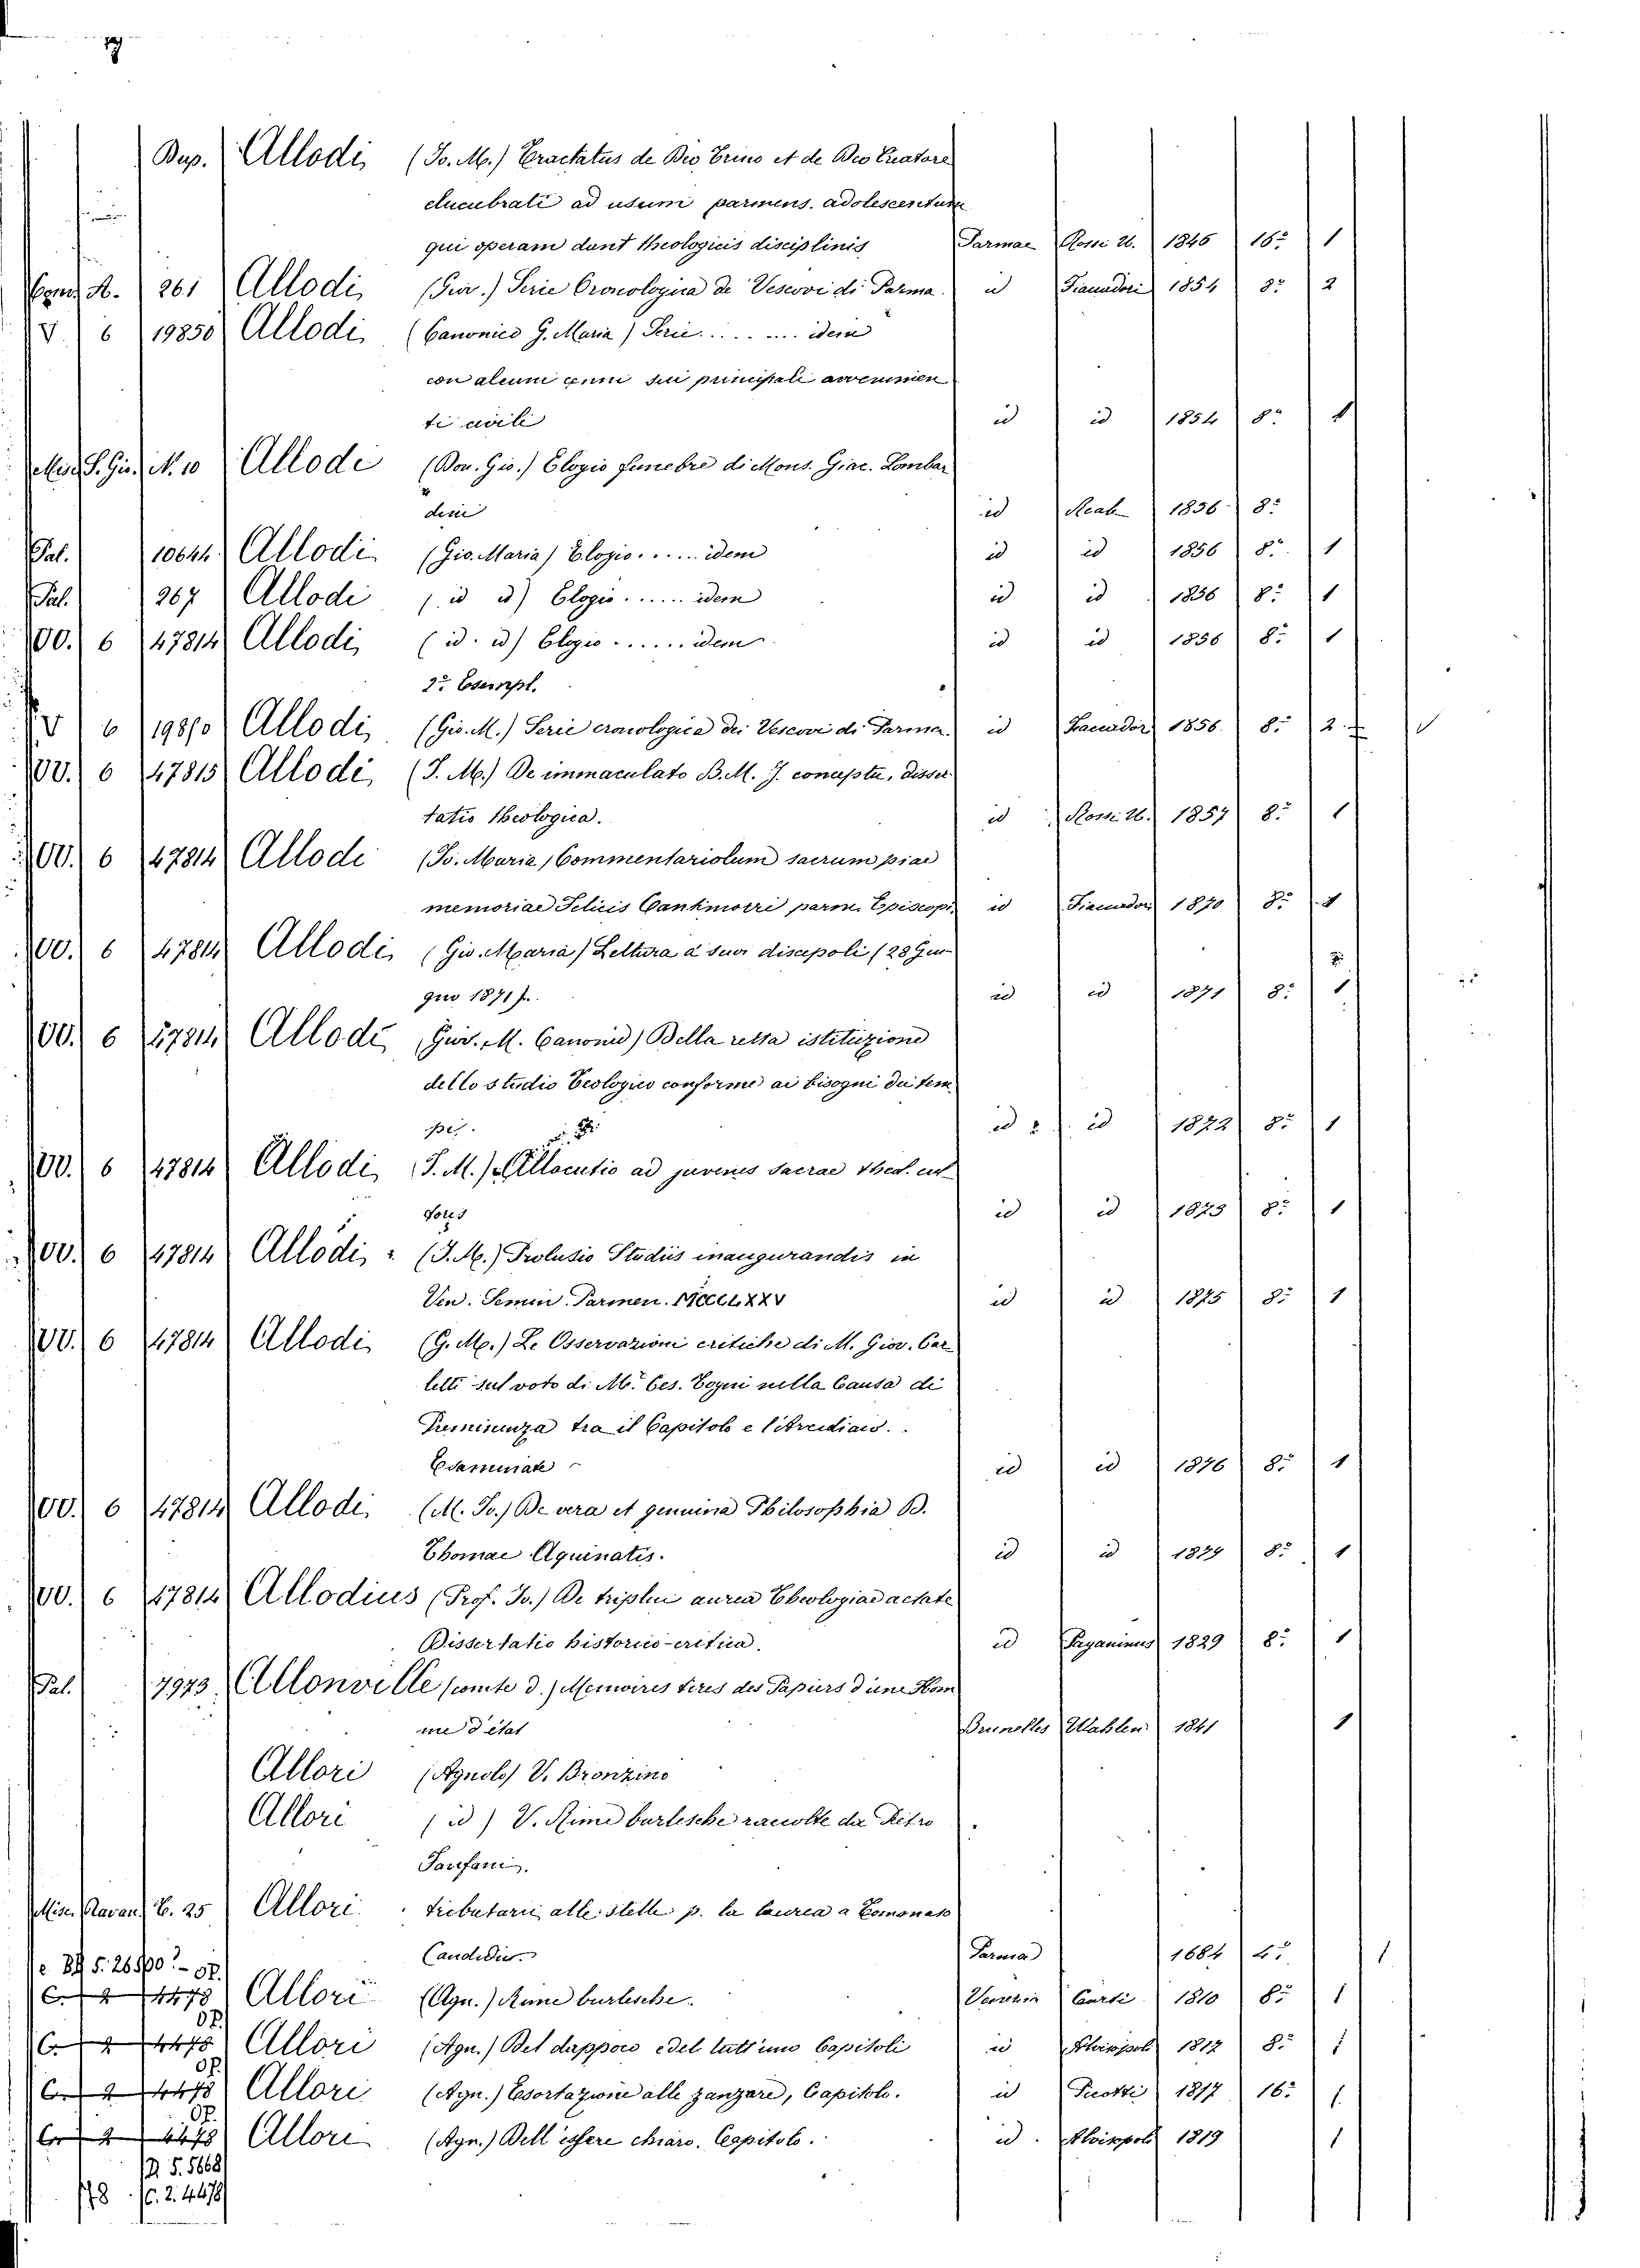 Dup. Allodi (Jo. M.) Tractatus de Deo Trino et de Deo Creatore
elucubrati ad usum parmens. adolescentum
qui operam dant theologicis disciplinis Parmae Rossi U. 1846 16º 1
A. 261 Allodi (Giov.) Serie Cronologica de Vescovi di Parma. id Fiaccadori 1854 8º 2
V 6 19850 Allodi (Canonico G. Maria) Serie ........ idem
con alcuni cenni sui principali avvenimen
ti civili id id 1854 8º 1
Misc. S. Gio. N. 10 Allodi (Don. Gio.) Elogio funebre di Mons. Giac. Lombar
dini id Reale 1856 8º
Pal. 10644 Allodi (Gio. Maria) Elogio ...... idem id id 1856 8º 1
Pal. 267 Allodi (id id) Elogio ...... idem id id 1856 8º 1
OO. 6 47814 Allodi (id. id) Elogio ...... idem id id 1856 8º 1
2º Esempl.
V 6 19810 Allodi (Gio. M.) Serie cronologica dei Vescovi di Parma. id Fiaccadori 1856. 8º 2
OO. 6 47815 Allodi (J. M.) De immaculato B. M. J. conceptu, disser
tatio theologica. id Rossi U. 1857 8º 1
OO. 6 47814 Allodi (Jo. Maria) Commentariolum sacrum piae
memoriae Felicis Cantimorri parm. Episcopi. id Fiaccadori 1870 8º 1
OO. 6 47814 Allodi (Gio. Maria) Lettura a suoi discepoli (28 Giu
gno 1871). id id 1871 8º 1
OO. 6 47814 Allodi (Giov. M. Canonico) Della retta istituzione
dello studio Teologico conforme ai bisogni dei tem
pi. id id 1872 8º 1
OO. 6 47814 Allodi (J. M.) Allocutio ad juvenes sacrae theol. cul
tores id id 1873 8º 1
OO. 6 47814 Allodi (J. M.) Prolusio Studiis inaugurandis in
Ven. Semin. Parmen. id id 1875 8º 1
OO. 6 47814 Allodi (G. M.) Le Osservazioni critiche di M. Giov. Car
letti sul voto di M. Ces. Togni nella Causa di
Preminenza tra il Capitolo e l'Arcidiac.
Esaminate id id 1876 8º 1
OO. 6 47814 Allodi (M. Jo.) De vera et genuina Philosophia D.
Thomae Aquinatis. id id 1879 8º 1
OO. 6 47814 Allodius (Prof. Jo.) De triplici aurea Theologiae aetate
Dissertatio historico-critica. id Paganinus 1829 8º 1
Pal. 7973 Allonville (comte d.) Memoires tirés des Papiers d'une Hom
me d'état Brunelles Wahlen 1841 1
Allori (Agnolo) V. Bronzino
Allori (id) V. Rime burlesche raccolte da Pietro
Fanfani.
Misc. Ravan. T. 25 Allori tributarii alle stelle p. la laurea a Tomonaso
Candidi Parma 1684 4º 1
C. 2 4478 Allori (Agn.) Rime burlesche. Venezia Curti 1810 8º 1
C. 2 4478 Allori (Agn.) Del dappoco e del tutt'uno Capitoli id Alvisopoli 1812 8º 1
C. 2 4478 Allori (Agn.) Esortazione alle zanzare, Capitolo. id Picotti 1817 16º 1
C. 2 4478 Allori (Agn.) Dell'essere chiaro. Capitolo. id. Alvisopoli 1819 1
D. 5. 5668
C. 2. 4478